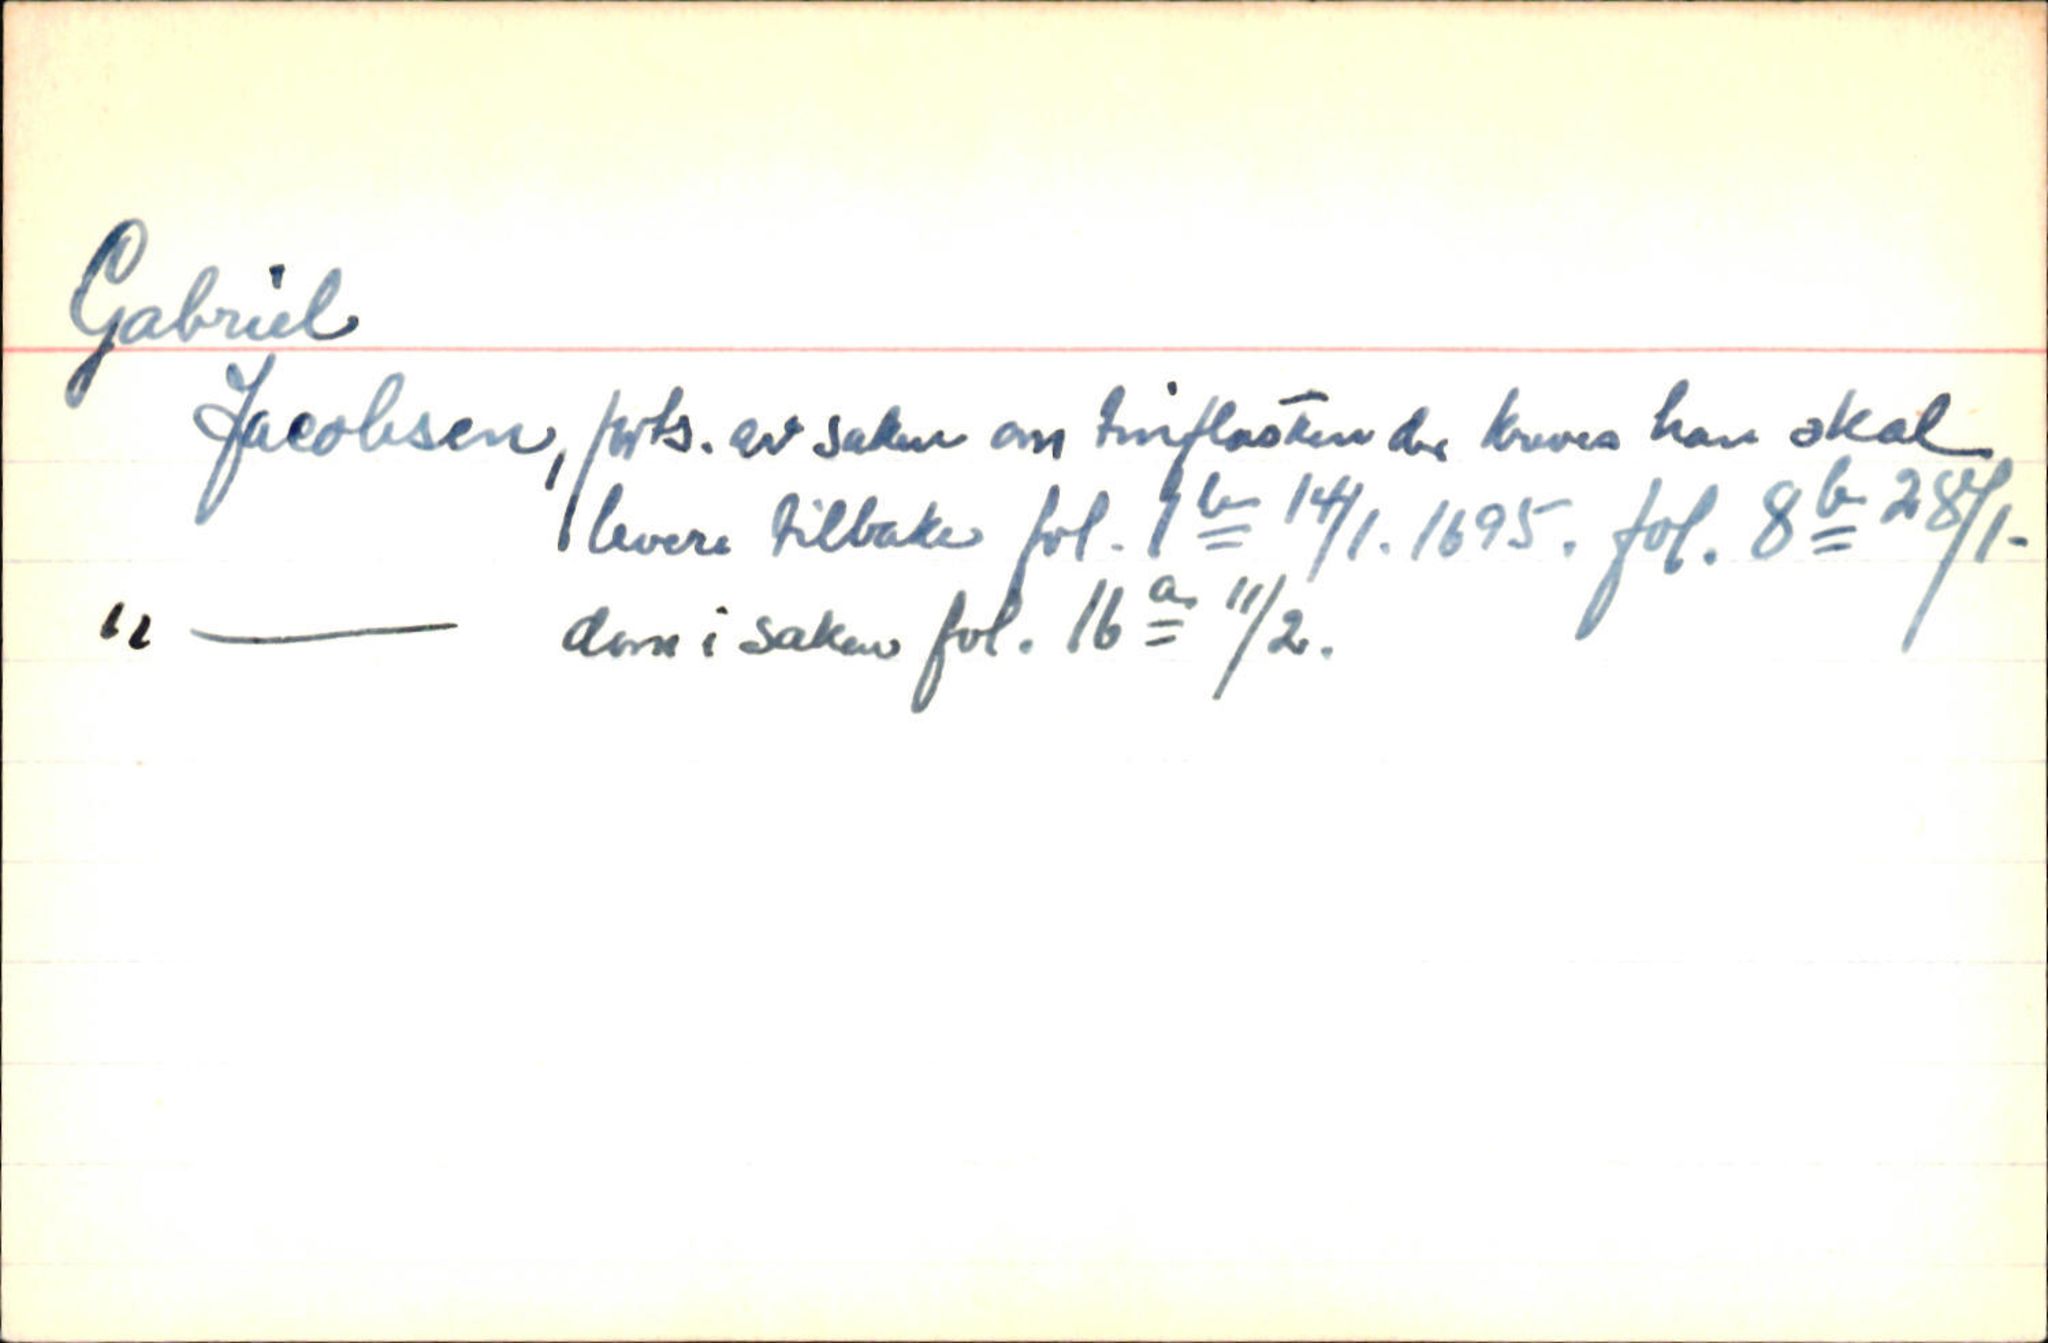 Gabriel
Jacobsen, forts. av saken om tinflasken der kreves han skal
levere tilbake fol. 1 b 14/1. 1695. fol. 8 b 28/1.
" —— dom i saken fol. 16 a 11/2.